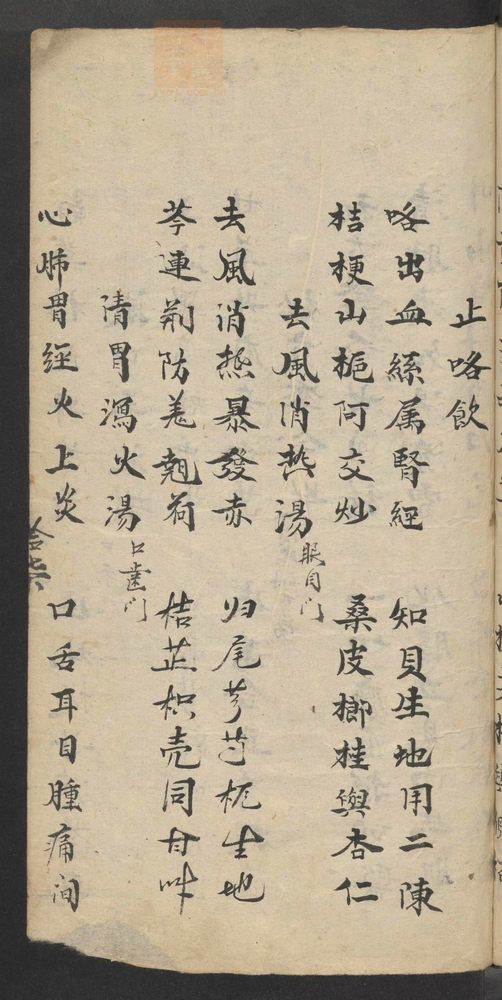 止咯飲
咯出血絲属腎經 知貝生地用二陳
桔梗山梔阿交炒 桑皮榔桂與杏仁
去風消热湯 眼目门
去風消热暴發赤 归尾芍芎梔生地
芩連荆防羗翘荷 桔芷枳壳同甘叶
清胃瀉火湯 口歯门
心肺胃經火上炎 口舌耳目腫痛间